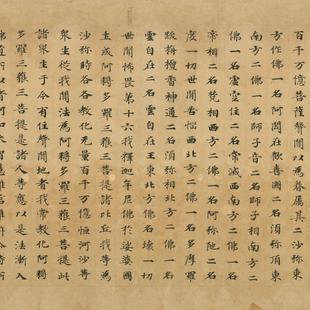 百千万億菩薩聲聞以為眷属其二沙弥東
方作佛一名阿閦在歡喜國二名須弥頂東
南方二佛一名師子音二名師子相南方二
佛一名虛空住二名常滅西南方二佛一名
帝相二名梵相西方二佛一名阿弥陁二名
度一切世間苦惱西北方二佛一名多摩羅
跋栴檀香神通二名須弥相北方二佛一名
雲自在二名雲自在王東北方佛名壞一切
世間怖畏第十六我釋迦牟尼佛於娑婆國
土成阿耨多羅三藐三菩提諸比丘我等為
沙弥時各各教化无量百千万億恒河沙等
眾生從我聞法為阿耨多羅三藐三菩提此
諸眾生于今有住聲聞地者我常教化阿耨
多羅三藐三菩提是諸人等應以是法漸入
佛道所以者何如來智慧難信難解爾時所